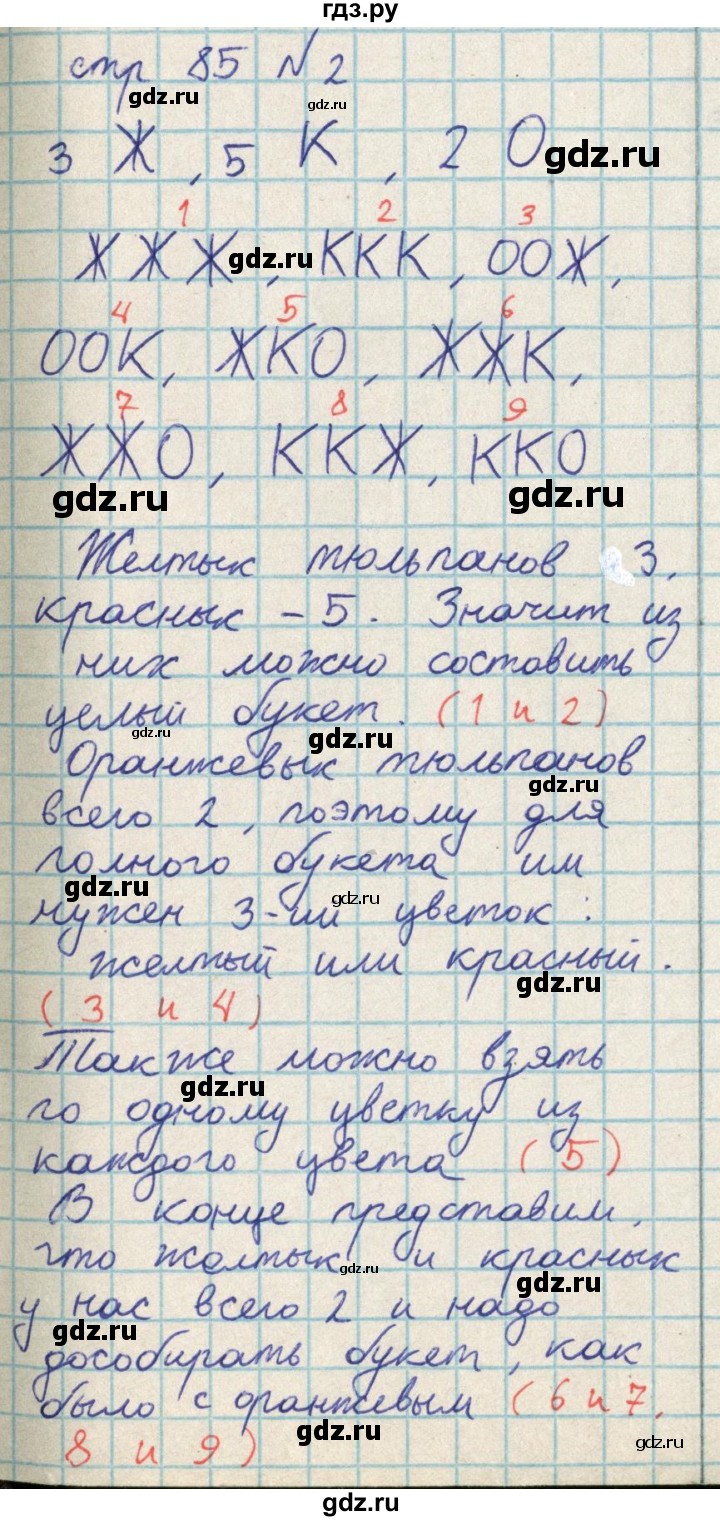 гдз.ру
стр 85 №2
gdz.ru gdz.ru
3 Ж, 5 К, 2 О
gdz.ru
1 2 3
ЖЖЖ, ККК, ООЖ,
gdz.ru
4 5 6
ООК, ЖКО, ЖЖК,
7 8 9
ЖЖО, ККЖ, ККО
gdz.ru gdz.ru
Желтых тюльпанов 3,
красных – 5. Значит из
них можно составить
целый букет. (1 и 2)
gdz.ru gdz.ru
Оранжевых тюльпанов
gdz.ru
всего 2, поэтому для
полного букета им
gdz.ru gdz.ru
нужен 3-ий цветок:
желтый или красный.
gdz.ru
(3 и 4)
Также можно взять
gdz.ru
по одному цветку из
каждого цвета (5)
В конце представим,
что желтых и красных
gdz.ru gdz.ru
у нас всего 2 и надо
gdz.ru
дособирать букет, как
было с оранжевым (6 и 7,
gdz.ru gdz.ru
8 и 9)
gdz.ru